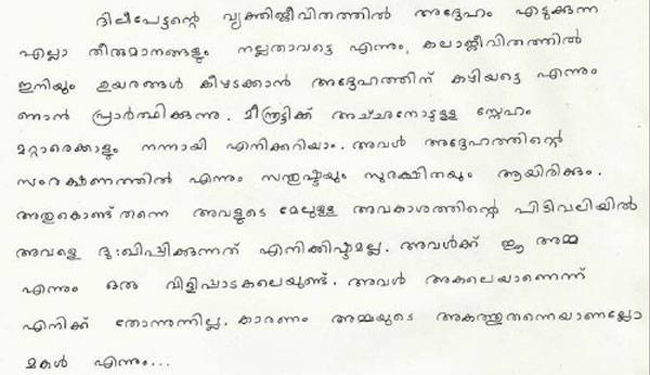 ദിലീപേട്ടന്റെ വ്യക്തിജീവിതത്തിൽ അദ്ദേഹം എടുക്കുന്ന
എല്ലാ തീരുമാനങ്ങളും നല്ലതാവട്ടെ എന്നും, കലാജീവിതത്തിൽ
ഇനിയും ഉയരങ്ങൾ കീഴടക്കാൻ അദ്ദേഹത്തിന് കഴിയട്ടെ എന്നും
ഞാൻ പ്രാർത്ഥിക്കുന്നു. മീനൂട്ടിക്ക് അച്ഛനോടുള്ള സ്നേഹം
മറ്റാരെക്കാളും നന്നായി എനിക്കറിയാം. അവൾ അദ്ദേഹത്തിന്റെ
സംരക്ഷണത്തിൽ എന്നും സന്തുഷ്ടയും സുരക്ഷിതയും ആയിരിക്കും.
അതുകൊണ്ട് തന്നെ അവളുടെ മേലുള്ള അവകാശത്തിന്റെ പിടിവലിയിൽ
അവളെ ദു:ഖിപ്പിക്കുന്നത് എനിക്കിഷ്ടമല്ല. അവൾക്ക് ഈ അമ്മ
എന്നും ഒരു വിളിപ്പാടകലെയുണ്ട്. അവൾ അകലെയാണെന്ന്
എനിക്ക് തോന്നുന്നില്ല. കാരണം അമ്മയുടെ അകത്തുതന്നെയാണല്ലോ
മകൾ എന്നും...